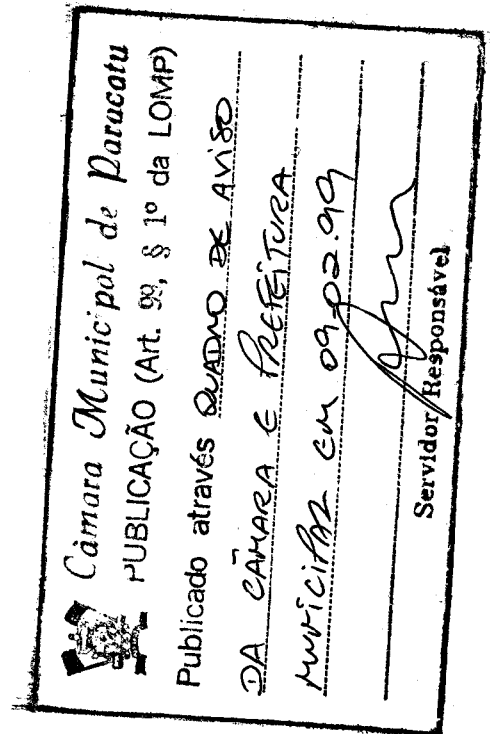 Câmara Municipal de Paracatu
PUBLICAÇÃO (Art. 99, § 1º da LOMP)
Publicado através QUADRO DE AVISO
DA CÂMARA E PREFEITURA
MUNICIPAL EM 09.02.99
Servidor Responsável